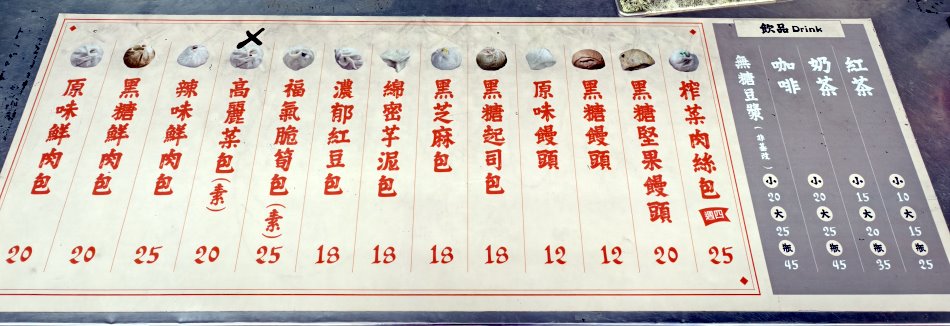 原味鮮肉包
20
黑糖鮮肉包
20
辣味鮮肉包
25
高麗菜包(素)
20
福氣脆筍包(素)
25
濃郁紅豆包
18
綿密芋泥包
18
黑芝麻包
18
黑糖起司包
18
原味饅頭
12
黑糖饅頭
12
黑糖堅果饅頭
20
榨菜肉絲包
週四
25
飲品 Drink
無糖豆漿(非基改)
小
20
大
25
瓶
45
咖啡
小
20
大
25
瓶
45
奶茶
小
15
大
20
瓶
35
紅茶
小
10
大
15
瓶
25